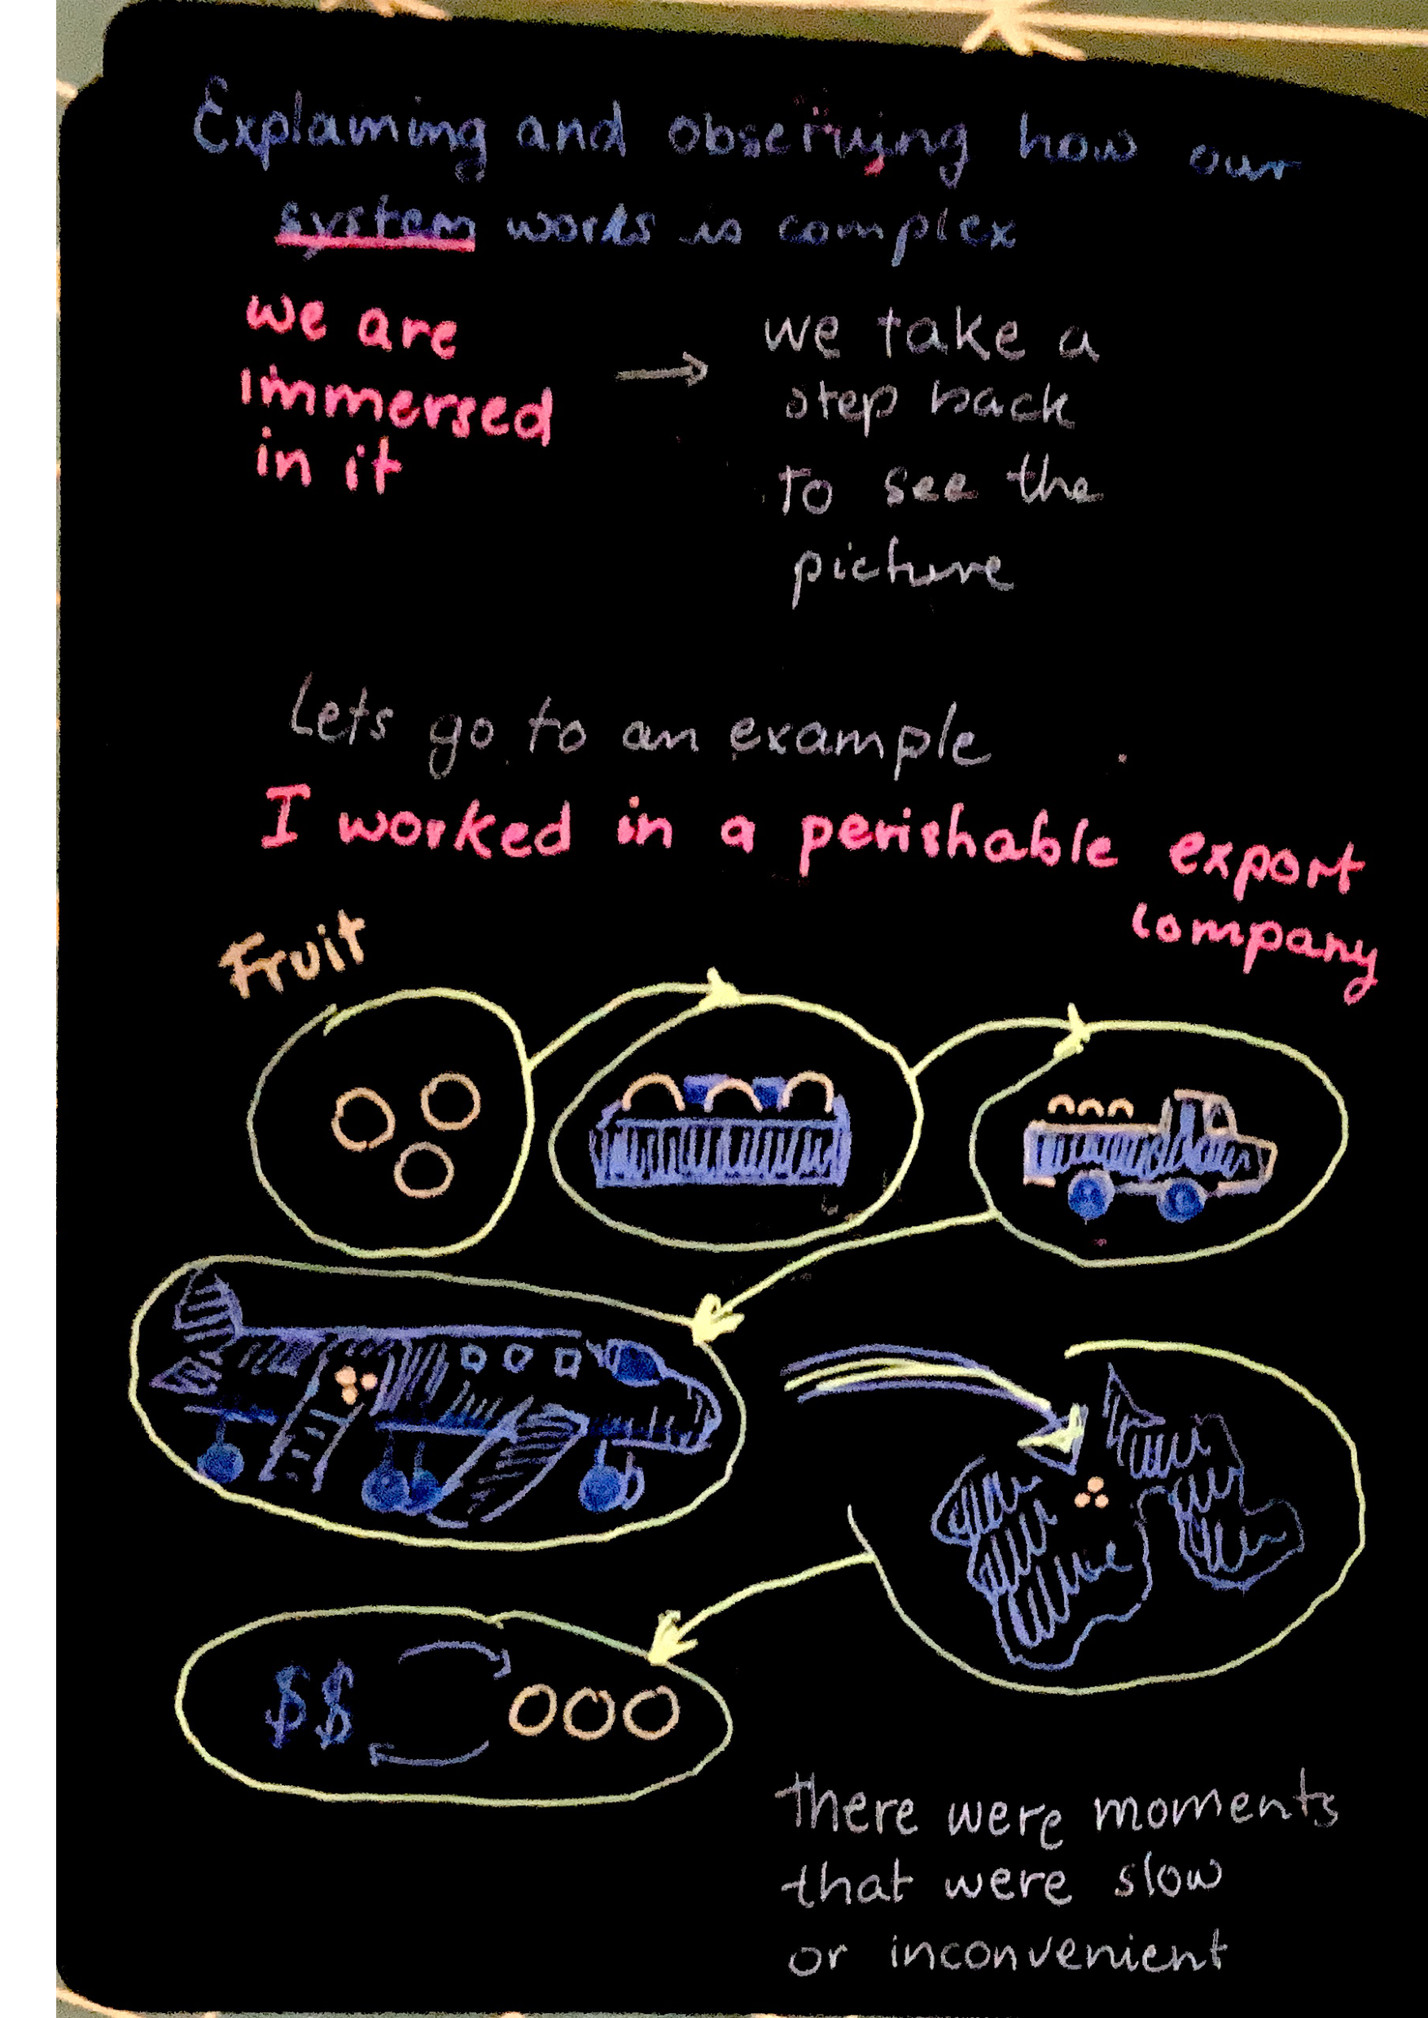 Explaining and observing how our
system works is complex
we are
immersed
in it
→
we take a
step back
to see the
picture
Lets go to an example
I worked in a perishable export
company
Fruit
$$
there were moments
that were slow
or inconvenient